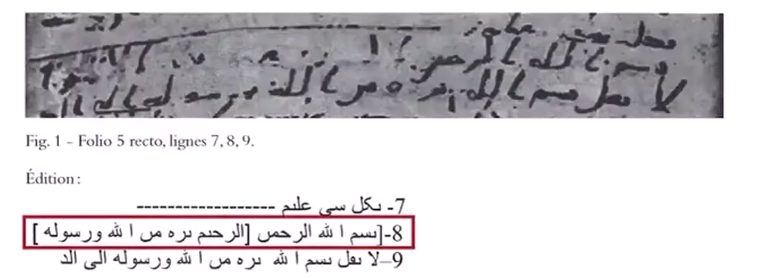 Fig. 1 – Folio 5 recto, lignes 7, 8, 9.
Édition :
7- ٮكل سى علٮم ------------------
8-[ٮسم ا لله الرحمں [الرحٮم ٮره مں ا لله ورسوله ]
9–لا ٮڡل ٮسم ا لله ٮره مں ا لله ورسوله الى الد